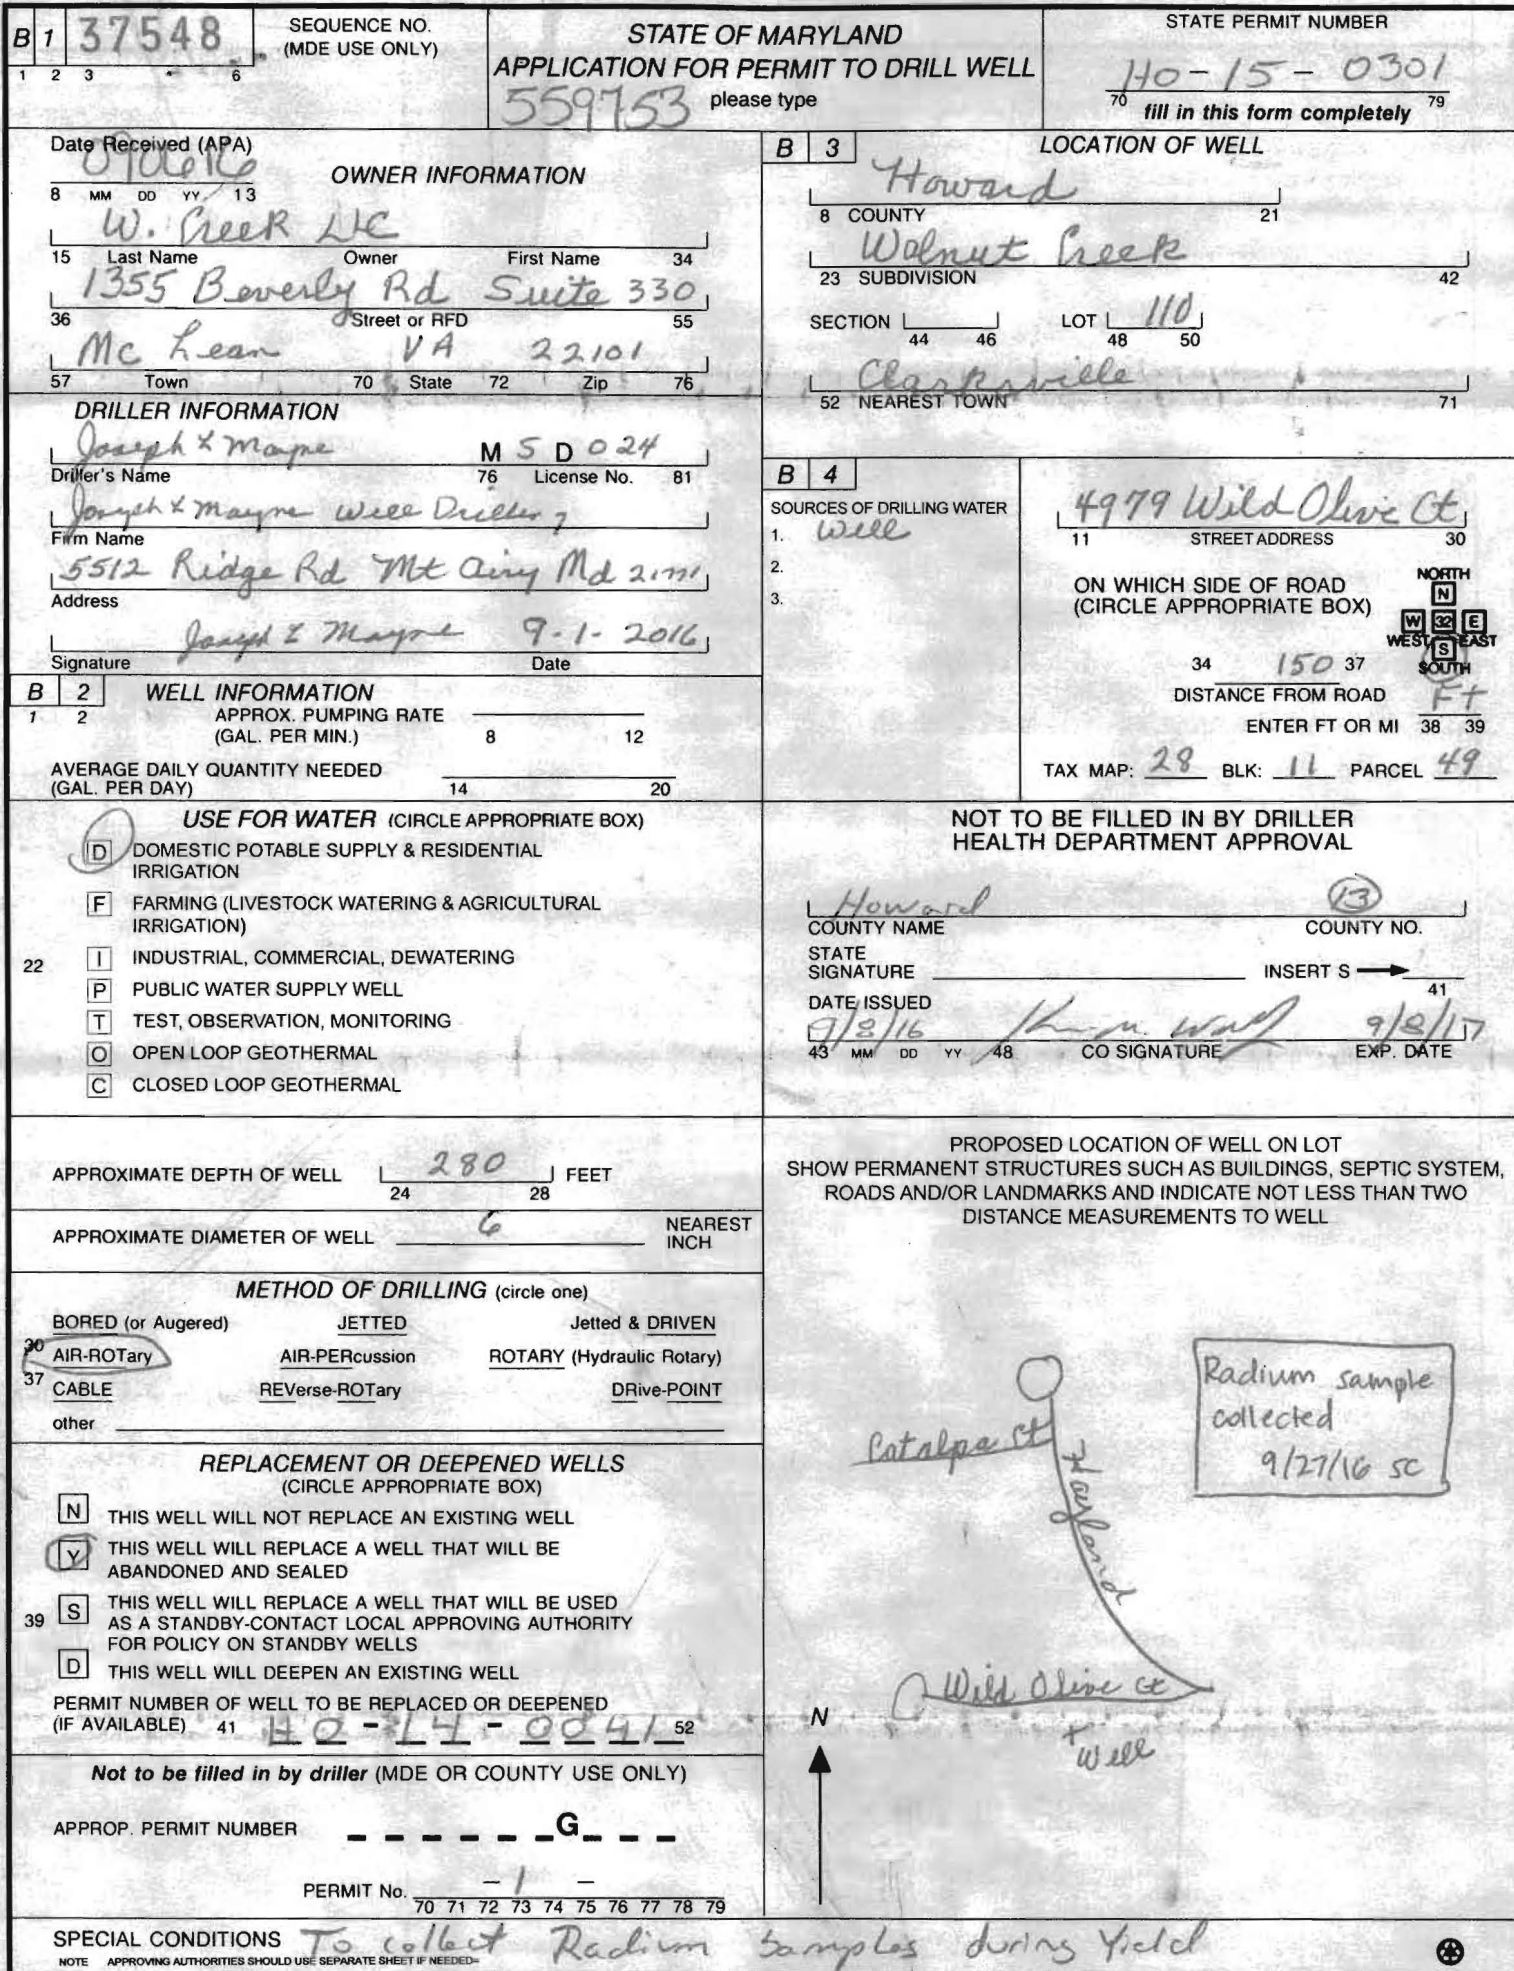 B 1 37548 SEQUENCE NO. (MDE USE ONLY)
1 2 3 6
STATE OF MARYLAND
APPLICATION FOR PERMIT TO DRILL WELL
559753 please type
STATE PERMIT NUMBER
HO-15-0301
70 79
fill in this form completely
Date Received (APA)
090616
8 MM DD YY 13
OWNER INFORMATION
W. Creek LLC
15 Last Name Owner First Name 34
1355 Beverly Rd Suite 330
36 Street or RFD 55
Mc Lean VA 22101
57 Town 70 State 72 Zip 76
DRILLER INFORMATION
Joseph L Mayne M S D 024
Driller's Name 76 License No. 81
Joseph L Mayne Well Drilling
Firm Name
5512 Ridge Rd Mt Airy Md 21771
Address
Joseph L Mayne 9-1-2016
Signature Date
B 2 WELL INFORMATION
1 2 APPROX. PUMPING RATE
(GAL. PER MIN.) 8 12
AVERAGE DAILY QUANTITY NEEDED
(GAL. PER DAY) 14 20
USE FOR WATER (CIRCLE APPROPRIATE BOX)
D DOMESTIC POTABLE SUPPLY & RESIDENTIAL
IRRIGATION
F FARMING (LIVESTOCK WATERING & AGRICULTURAL
IRRIGATION)
22 I INDUSTRIAL, COMMERCIAL, DEWATERING
P PUBLIC WATER SUPPLY WELL
T TEST, OBSERVATION, MONITORING
O OPEN LOOP GEOTHERMAL
C CLOSED LOOP GEOTHERMAL
APPROXIMATE DEPTH OF WELL 280 FEET
24 28
APPROXIMATE DIAMETER OF WELL 6 NEAREST
INCH
METHOD OF DRILLING (circle one)
BORED (or Augered) JETTED Jetted & DRIVEN
30 AIR-ROTary AIR-PERcussion ROTARY (Hydraulic Rotary)
37 CABLE REVerse-ROTary DRive-POINT
other
REPLACEMENT OR DEEPENED WELLS
(CIRCLE APPROPRIATE BOX)
N THIS WELL WILL NOT REPLACE AN EXISTING WELL
Y THIS WELL WILL REPLACE A WELL THAT WILL BE
ABANDONED AND SEALED
39 S THIS WELL WILL REPLACE A WELL THAT WILL BE USED
AS A STANDBY-CONTACT LOCAL APPROVING AUTHORITY
FOR POLICY ON STANDBY WELLS
D THIS WELL WILL DEEPEN AN EXISTING WELL
PERMIT NUMBER OF WELL TO BE REPLACED OR DEEPENED
(IF AVAILABLE) 41 HO-14-0041 52
Not to be filled in by driller (MDE OR COUNTY USE ONLY)
APPROP. PERMIT NUMBER G
PERMIT No. - 1 -
70 71 72 73 74 75 76 77 78 79
B 3 LOCATION OF WELL
Howard
8 COUNTY 21
Walnut Creek
23 SUBDIVISION 42
SECTION LOT 110
44 46 48 50
Clarksville
52 NEAREST TOWN 71
B 4
SOURCES OF DRILLING WATER
1. Well
2.
3.
4979 Wild Olive Ct
11 STREET ADDRESS 30
ON WHICH SIDE OF ROAD
(CIRCLE APPROPRIATE BOX)
NORTH
N
W 32 E
WEST S EAST
SOUTH
34 150 37
DISTANCE FROM ROAD Ft
ENTER FT OR MI 38 39
TAX MAP: 28 BLK: 11 PARCEL 49
NOT TO BE FILLED IN BY DRILLER
HEALTH DEPARTMENT APPROVAL
Howard 13
COUNTY NAME COUNTY NO.
STATE
SIGNATURE INSERT S
41
DATE ISSUED
9/8/16 9/8/17
43 MM DD YY 48 CO SIGNATURE EXP. DATE
PROPOSED LOCATION OF WELL ON LOT
SHOW PERMANENT STRUCTURES SUCH AS BUILDINGS, SEPTIC SYSTEM,
ROADS AND/OR LANDMARKS AND INDICATE NOT LESS THAN TWO
DISTANCE MEASUREMENTS TO WELL
Radium sample
collected
9/27/16 SC
Catalpa Ct
Hayland
Wild Olive Ct
N
+
Well
SPECIAL CONDITIONS To collect Radium Samples during Yield
NOTE APPROVING AUTHORITIES SHOULD USE SEPARATE SHEET IF NEEDED=